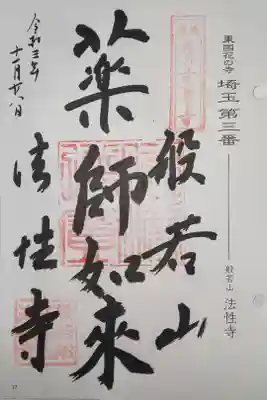 東国花の寺 埼玉第三番
般若山 法性寺
般若山
薬師如来
法性寺
令和三年
十一月廿八日